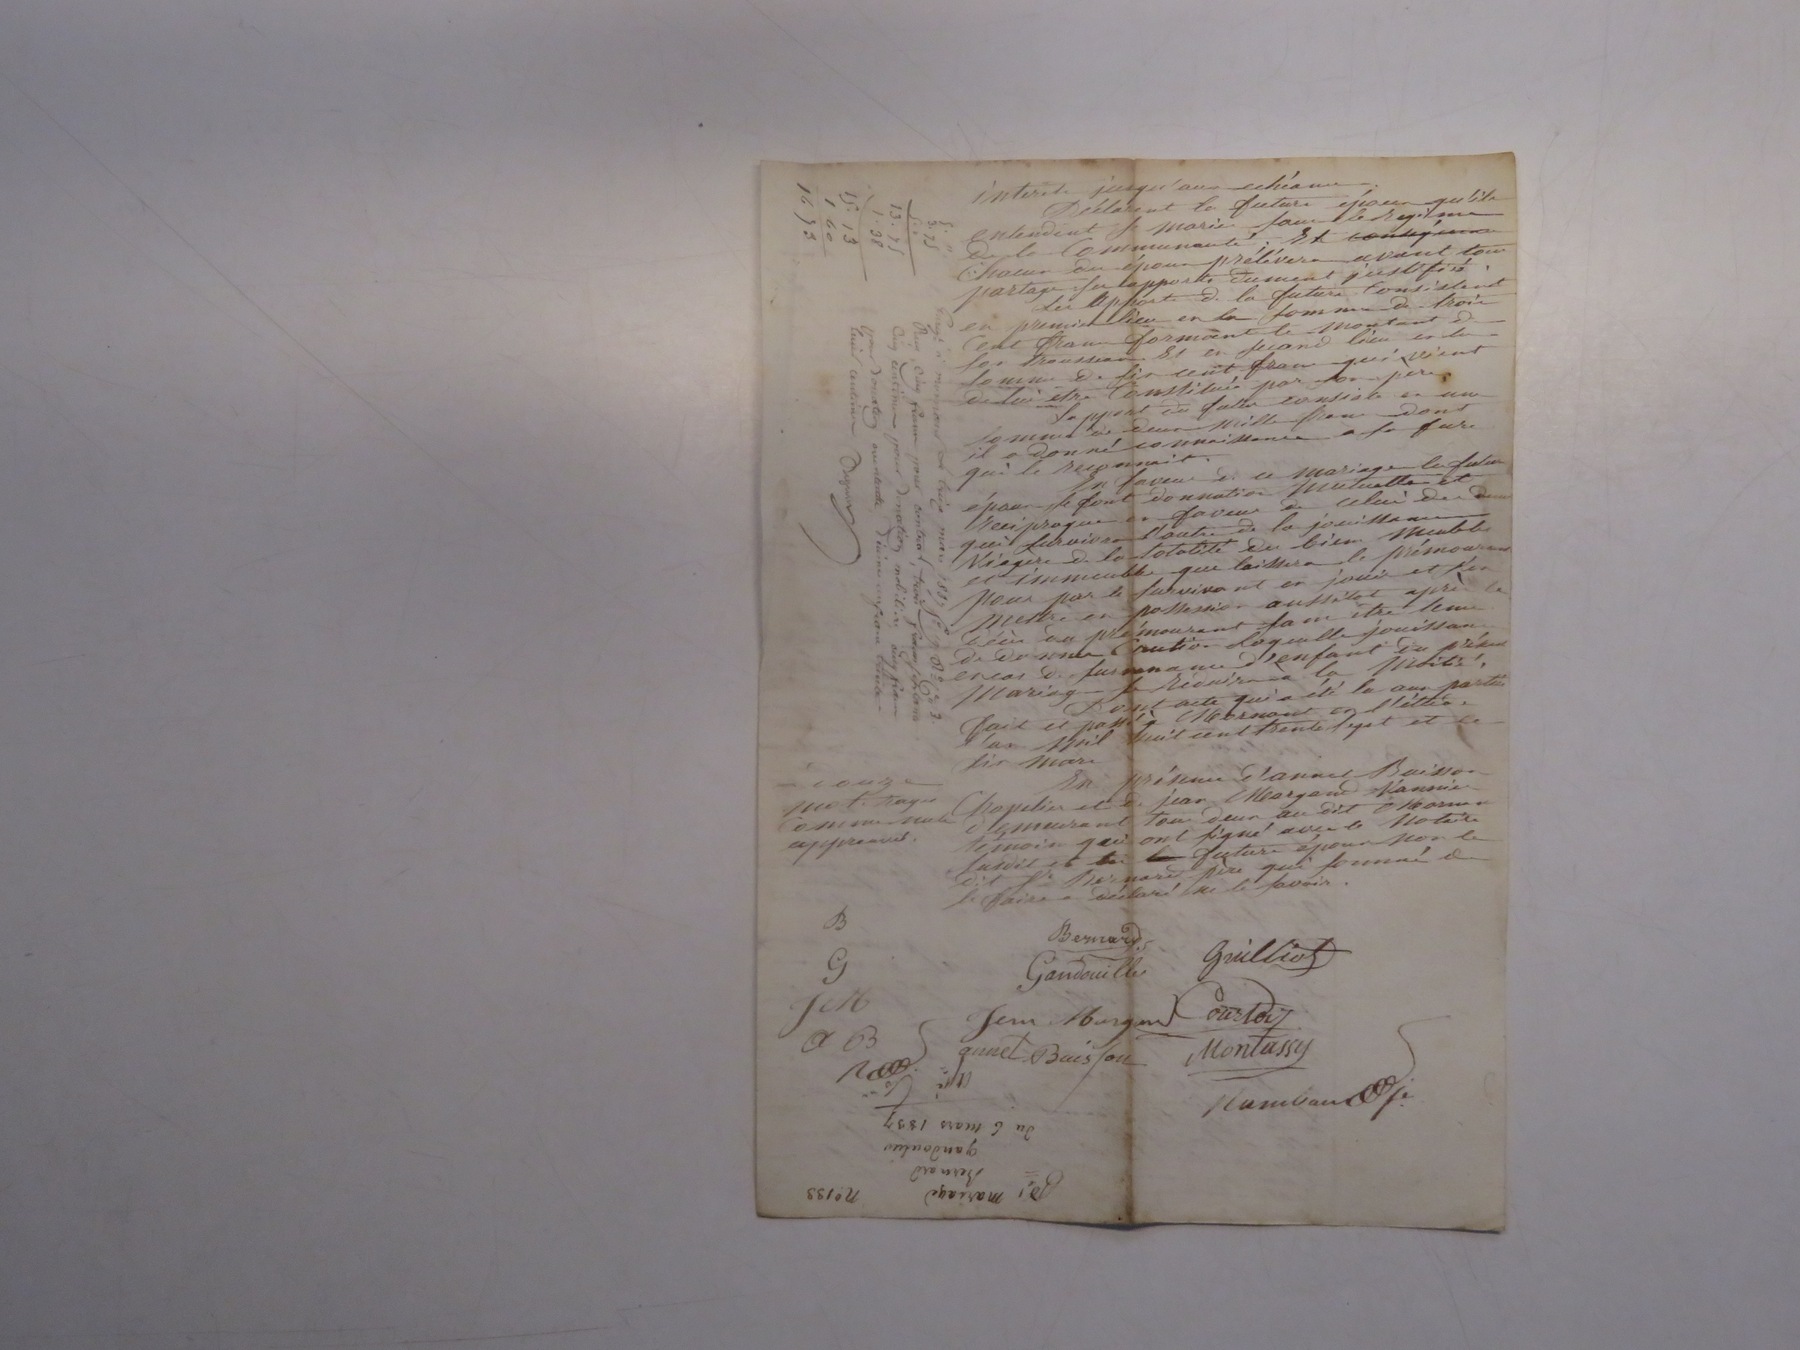 intérêts jusqu'aux échéances.
Déclarent les futurs époux qu'ils
entendent se marier sous le régime
de la Communauté. Et
Chacun des époux prélèvera avant tout
partage ses apports dument justifiés.
Les apports de la future Consistent
en premier lieu en la somme de trois
Cent francs formant le montant de
son trousseau Et en second lieu en la
somme de six cent francs qui vient
de lui être Constituée par son père
L'apport du futur consiste en une
somme de deux mille francs dont
il a donné connaissance a la future
qui le reconnait.
En faveur de ce mariage les futurs
époux se font donnation Mutuelle et
Réciproque en faveur de celui des deux
qui survivra l'autre de la jouissance
Viagère de la totalité des biens Meubles
et immeubles que laissera le prémourant
pour par le survivant en jouir et s'en
mettre en possession aussitôt après le
décès du prémourant sans être tenu
de donner Caution laquelle jouissance
en cas de survenance d'enfant du présent
Mariage se Réduira a la Moitié.
Dont acte qui a été lu aux parties
fait et passé à Mornant en l'étude
l'an Mil huit cent trente sept et le
six Mars
En présence d'annet Buisson
Chapelier et de jean Margand Vannier
demeurant tous deux au dit Mornant
témoins qui ont signé avec le Notaire
susdit et les futurs époux non le
dit Sr Bernard père qui sommé de
le faire a déclaré ne le savoir.
onze
mots rayés
comme nuls
approuvés.
B
G
J M
A B
Bernard
Gandouille
Guilliot
Jean Margand
Courtois
annet Buisson
Montassy
5. "
3. 75
13. 75
1. 38
15. 13
1 60
16 73
cinq francs pour contrat, trois francs
cinq centimes pour donation mobilière cinq francs
huit centimes
Mariage
Bernard
Gandouille
du 6 mars 1837
No 133